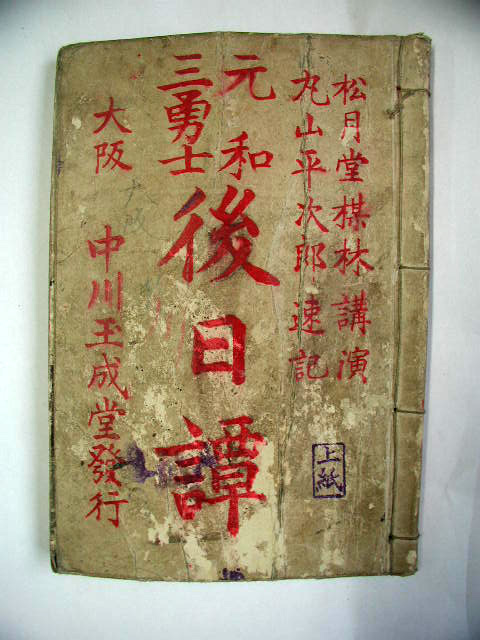 松月堂楳林講演
丸山平次郎速記
元和
三勇士
後日譚
大阪 中川玉成堂發行
上紙